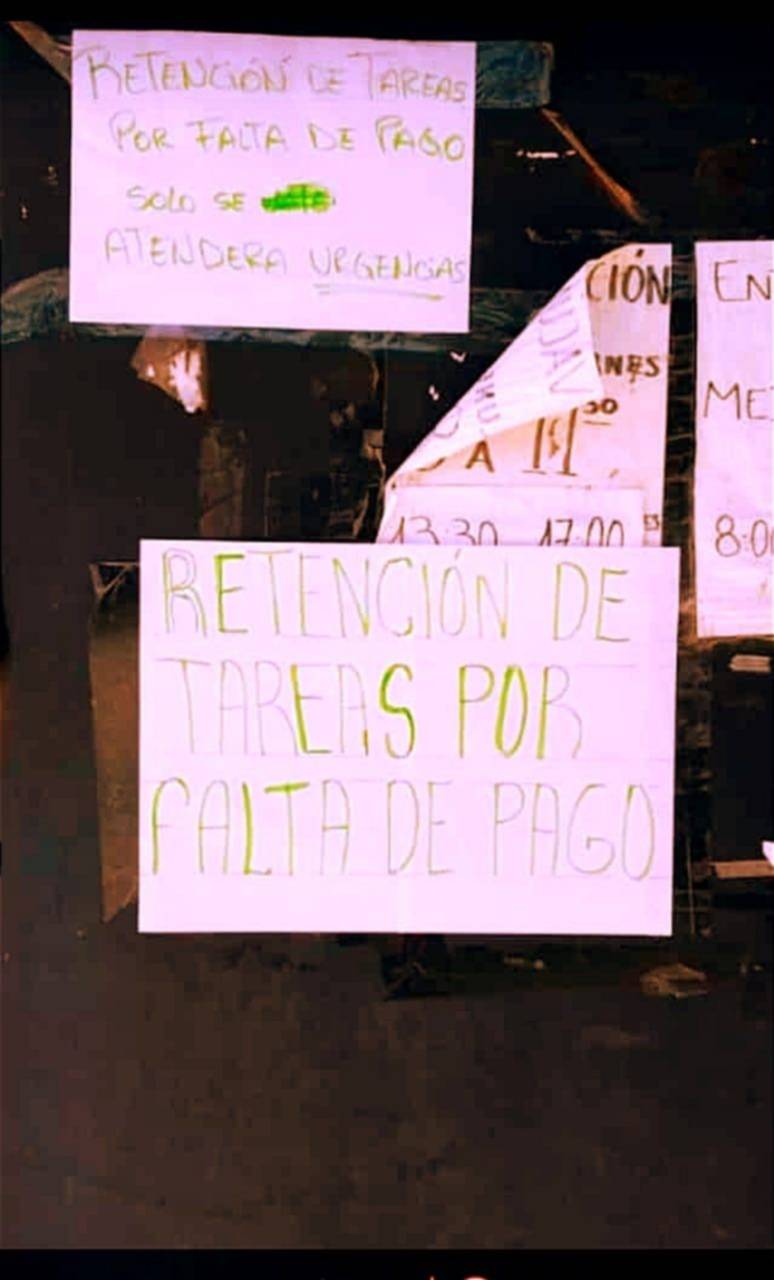 RETENCIÓN DE TAREAS
POR FALTA DE PAGO
SOLO SE
ATENDERA URGENCIAS
CIÓN
NES
30
A 11
13:30 17:00
EN
ME
8:00
RETENCIÓN DE
TAREAS POR
FALTA DE PAGO